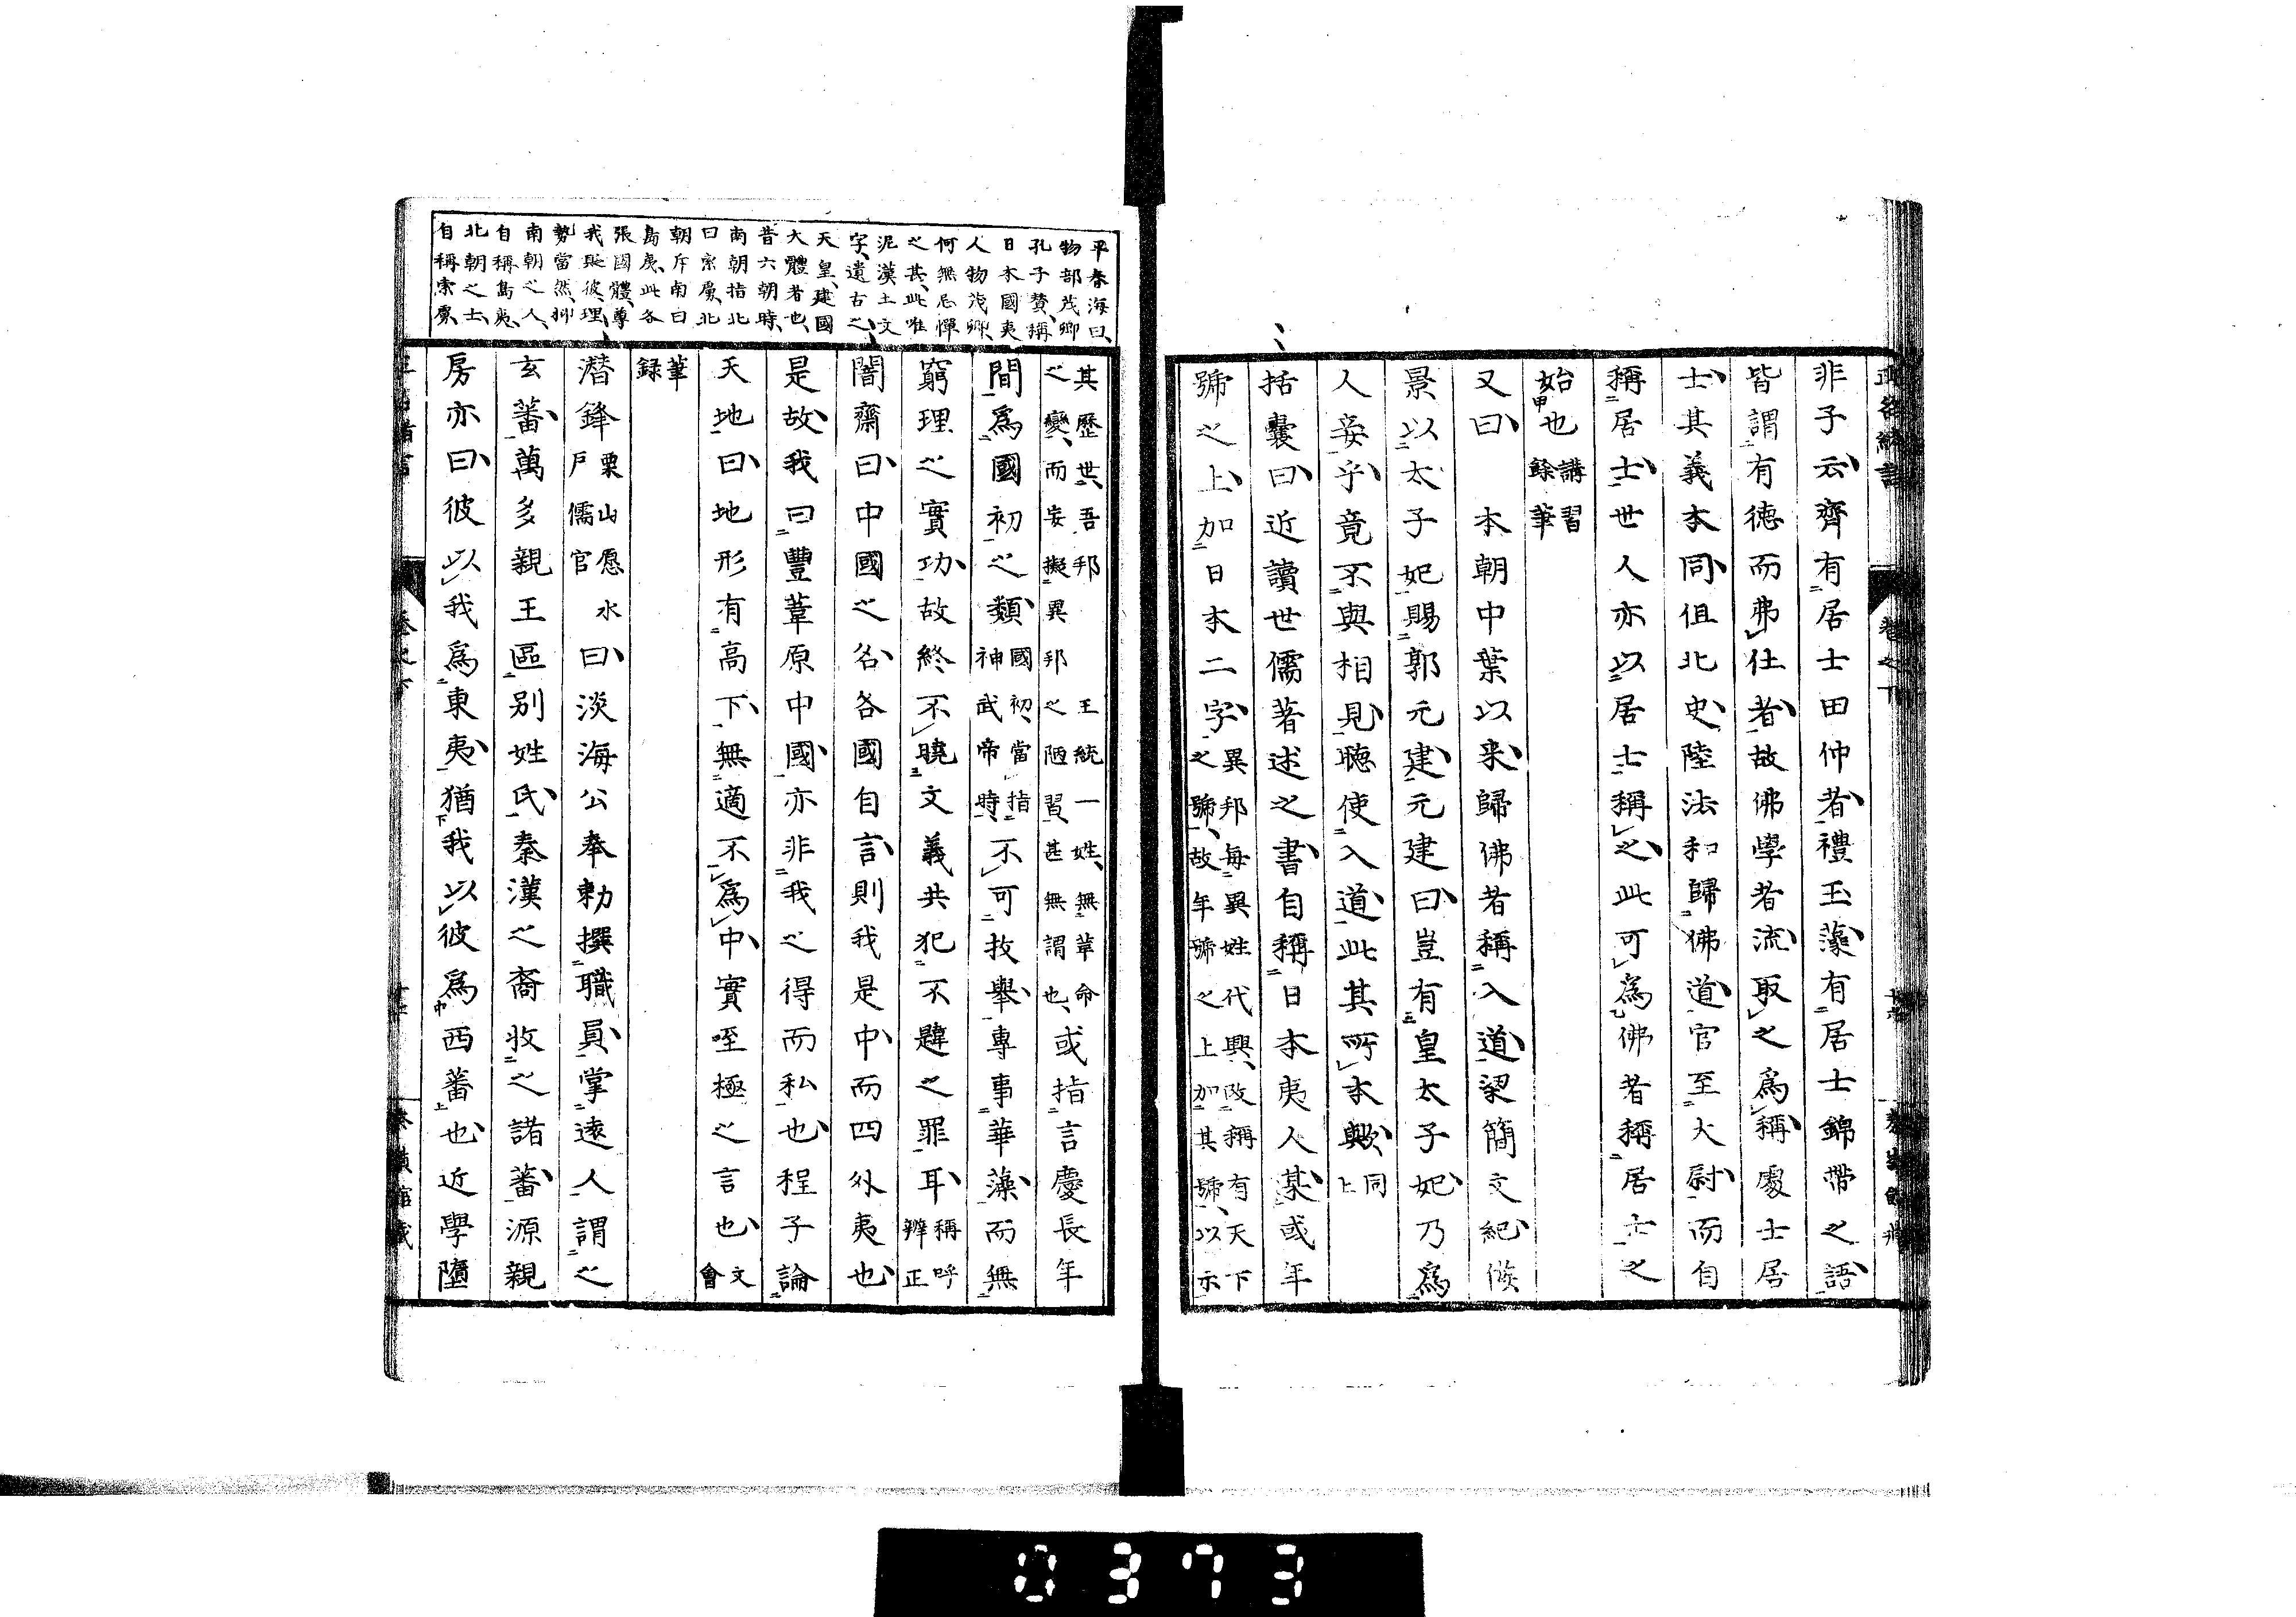 非子云齊有居士田仲者禮玉藻有居士錦帶之語
皆謂有徳而弗仕者故佛學者流取之爲稱處士居
士其義本同但北史陸法和歸佛道官至大尉而自
稱居士世人亦以居士稱之此可爲佛者稱居士之
始也
講習
餘筆
又曰 本朝中葉以来歸佛者稱入道梁簡文紀候
景以太子妃賜郭元建元建曰豈有皇太子妃乃爲
人妾乎竟不與相見聽使入道此其所本歟
同
上
括嚢曰近讀世儒著述之書自稱日本夷人某或年
號之上加日本二字
異邦毎異姓代興改稱有天下
之號故年號之上加其號以示
平春海曰
物部茂卿
孔子賛稱
日本國夷
人物茂卿
何無忌憚
之甚此唯
泥漢土文
字遺古之
天皇建國
大體者也
昔六朝時
南朝指北
曰索虜北
朝斥南曰
島夷此各
張國體尊
我貶彼理
勢當然抑
南朝之人
自稱島夷
北朝之士
自稱索虜
其歴世吾邦 王統一姓無革命
之變而妄擬異邦之陋習甚無謂也
或指言慶長年
間爲國初之類
國初當指
神武帝時
不可枚舉專事華藻而無
窮理之實功故終不曉文義共犯不韙之罪耳
稱呼
辨正
闇齋曰中國之名各國自言則我是中而四外夷也
是故我曰豐葦原中國亦非我之得而私也程子論
天地曰地形有高下無適不為中實至極之言也
文
會
筆
録
潛鋒
栗山愿水
戸儒官
曰淡海公奉勅撰職員掌遠人謂之
玄蕃萬多親王區別姓氏秦漢之裔收之諸蕃源親
房亦曰彼以我爲東夷猶我以彼爲西蕃也近學墮
0373